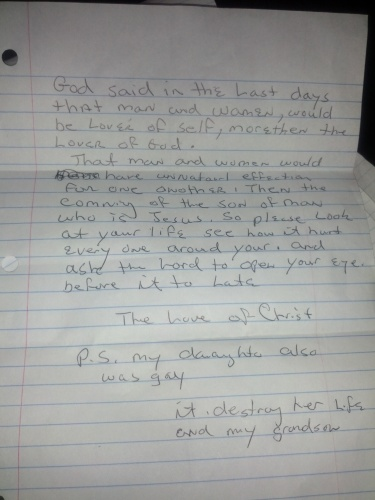 God said in the Last days
that man and women, would
be Lovés of self, morethen the
Lover of God.
That man and women would
have unnatural effection
for one another. Then the
comming of the son of man
who is Jesus. So please Look
at your life see how it hurt
every one around your. and
ask the Lord to open your eye.
before it to Late
The Love of Christ
P.S. my daughter also
was gay
it destroy her life
and my grandson